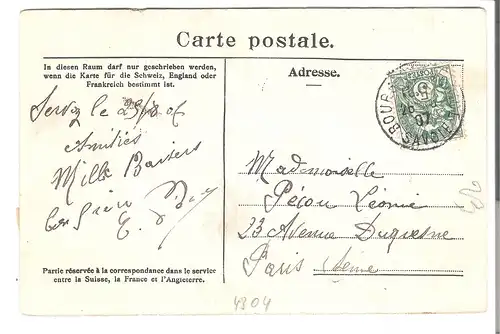 Carte postale.
In diesen Raum darf nur geschrieben werden,
wenn die Karte für die Schweiz, England oder
Frankreich bestimmt ist.
Adresse.
Amitiés
Mille Baisers
E.
Mademoiselle
Pécou Léonie
23 Avenue Duquesne
Paris Seine
Partie réservée à la correspondance dans le service
entre la Suisse, la France et l'Angleterre.
4304